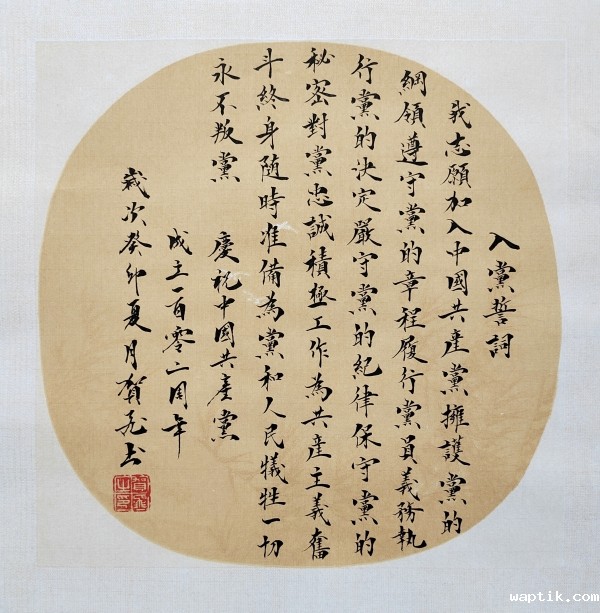 入黨誓詞
我志願加入中國共産黨擁護黨的
綱領遵守黨的章程履行黨員義務執
行黨的决定嚴守黨的紀律保守黨的
秘密對黨忠誠積極工作為共産主義奮
斗終身随時准備為黨和人民犧牲一切
永不叛黨 慶祝中國共産黨
成立一百零二周年
歲次癸卯夏月賀飛书
waptik.com